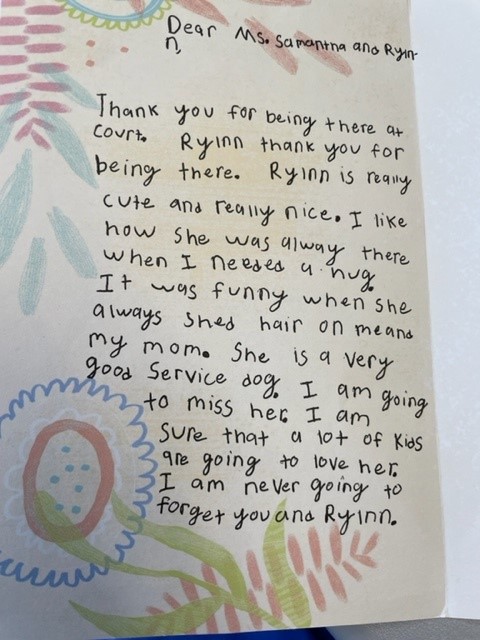 Dear Ms. Samantha and Ryin-
n,
Thank you for being there at
court. Ryinn thank you for
being there. Ryinn is really
cute and really nice. I like
how she was alway there
when I needed a hug.
It was funny when she
always shed hair on me and
my mom. She is a very
good service dog. I am going
to miss her. I am
sure that a lot of kids
are going to love her.
I am never going to
forget you and Ryinn.